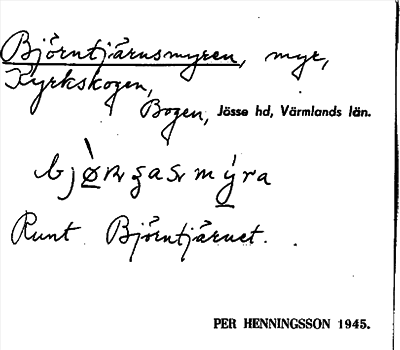 Björntjärnsmyren, myr,
Kyrkskogen,
Bogen, Jösse hd, Värmlands län.
Runt Björntjärnet.
PER HENNINGSSON 1945.